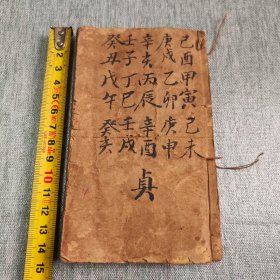 己酉甲寅己未
庚戌乙卯庚申
辛亥丙辰辛酉
壬子丁巳壬戌
癸丑戊午癸亥
貞
2
3
4
5
6
7
8
9
10
11
12
13
14
15